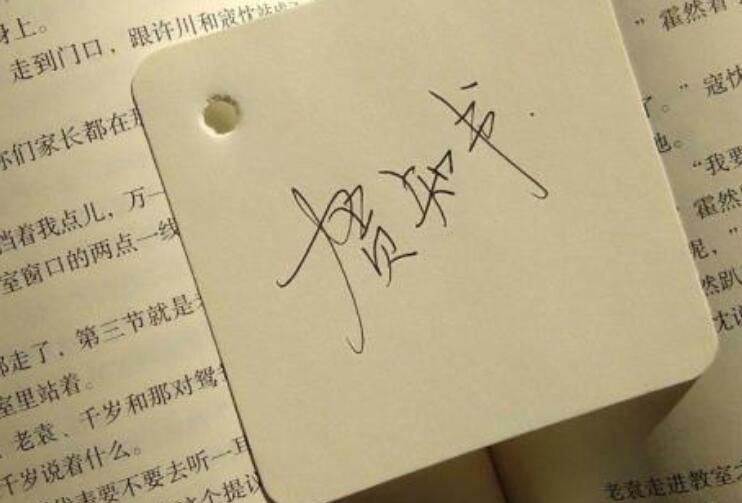 身上。
走到门口，跟许川和寇忱站
你们家长都在
挡着我点儿，万一
室窗口的两点一线
走了，第三节就是
室里站着。
老袁、千岁和那对鸳
千岁说着什么。
代表要不要去听一耳
这个提议
知书
”霍然看
了。”寇忱
地。
“我要
霍然
呢，”
然趴
忱说
老袁走进教室之